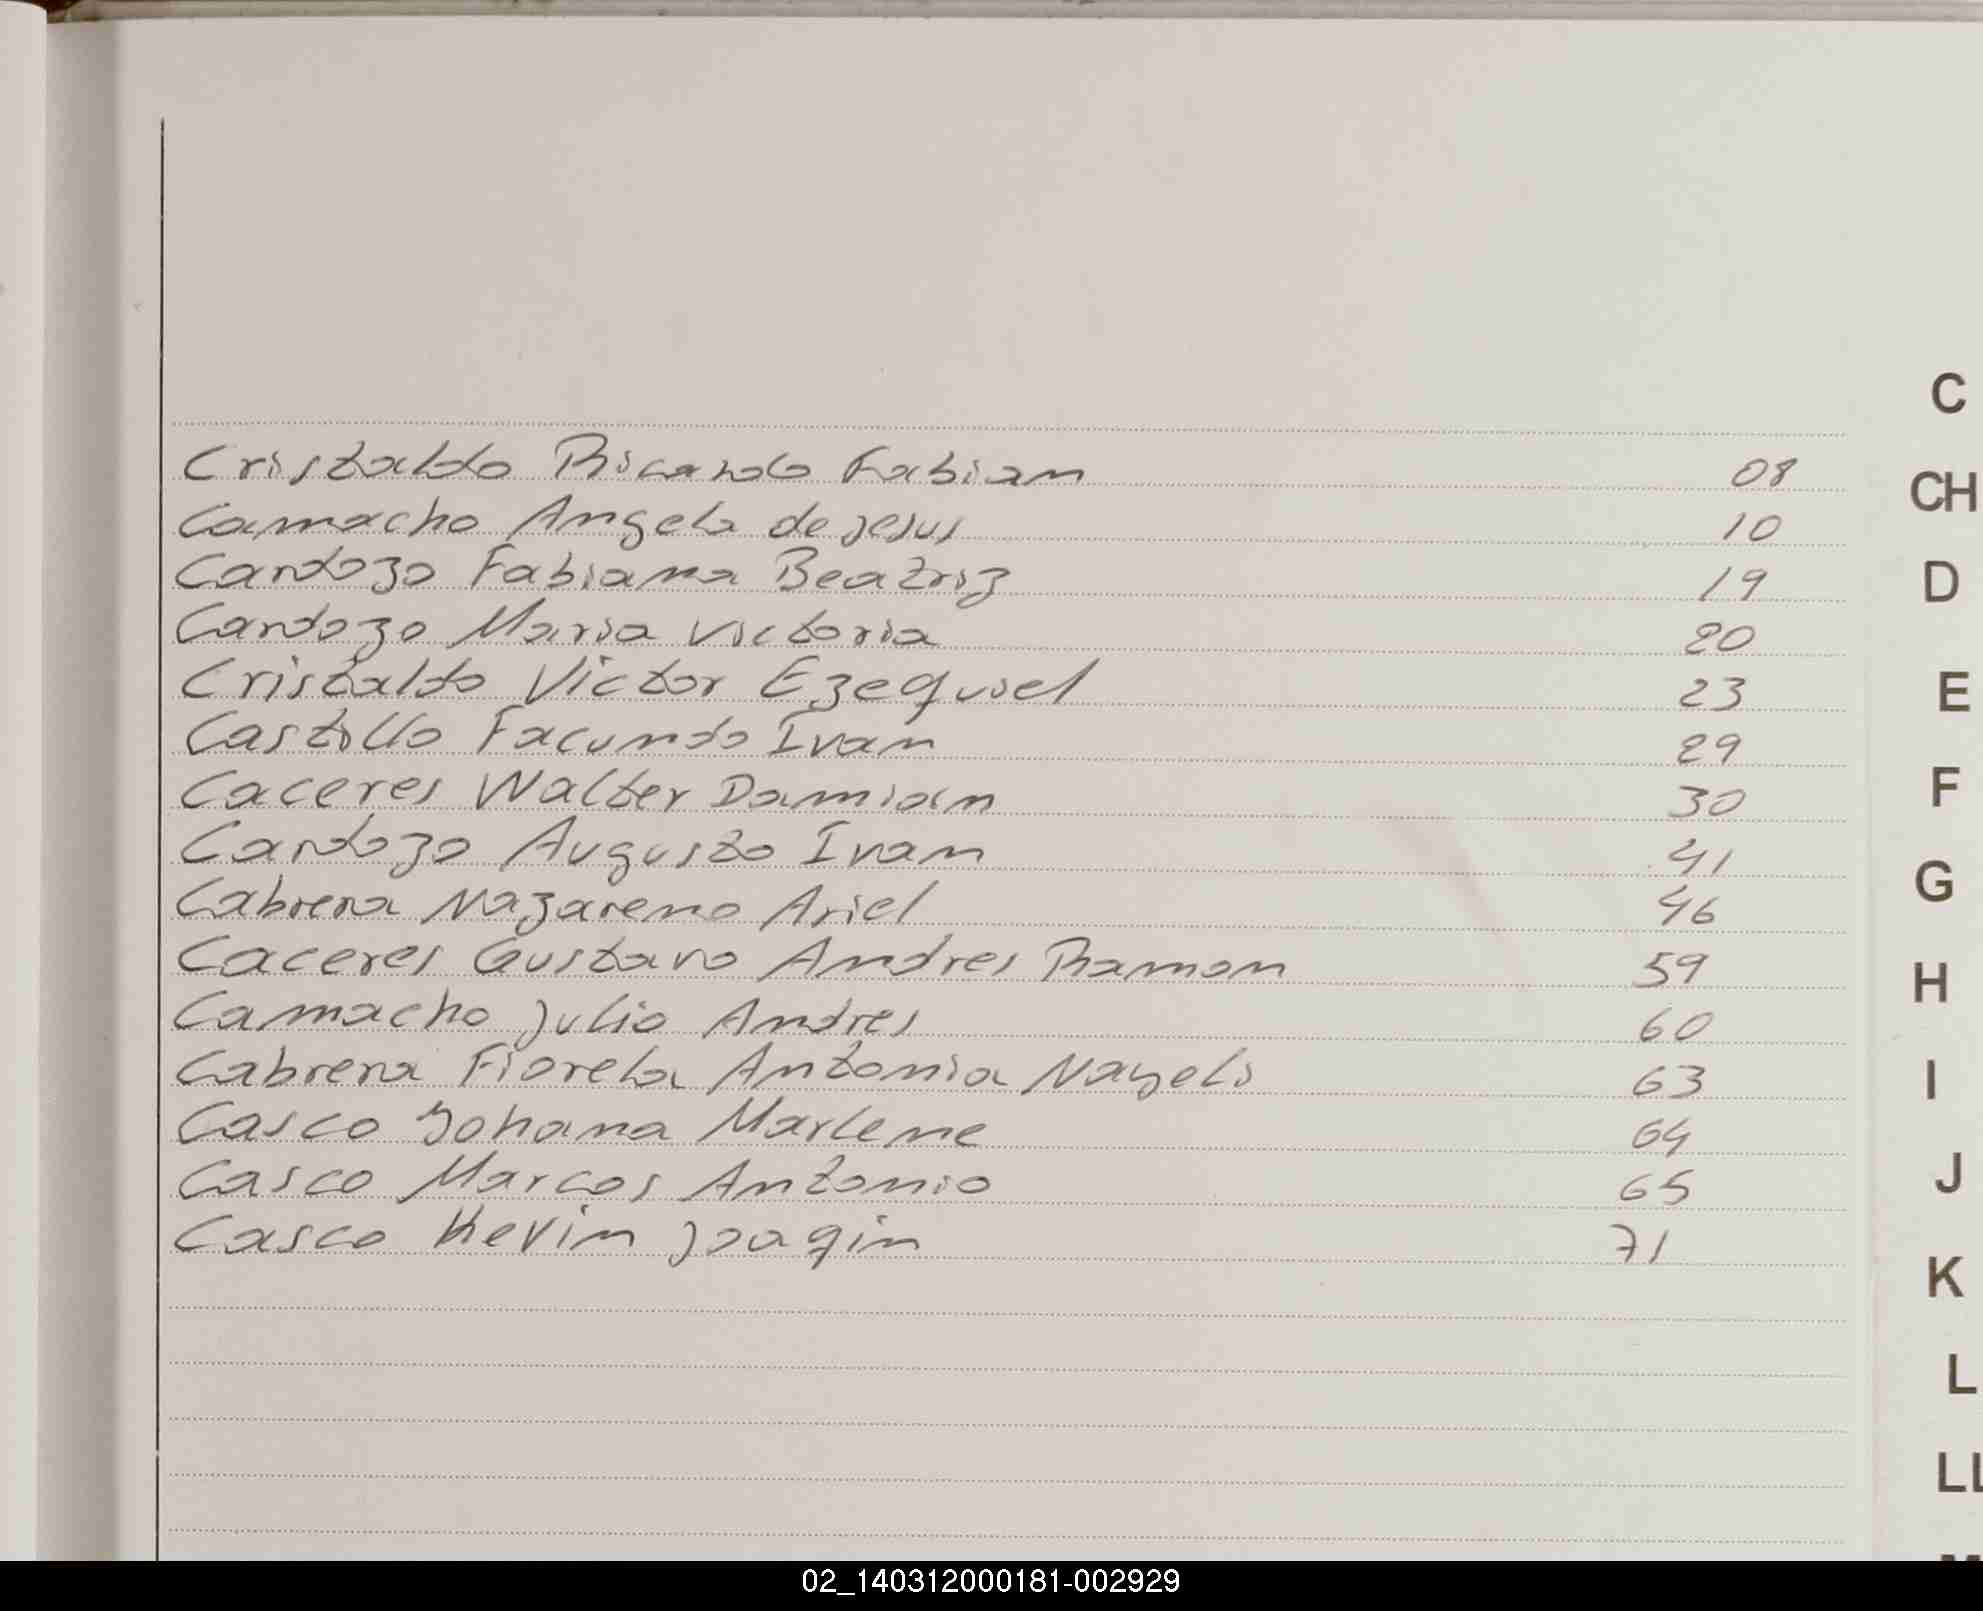 C
Cristaldo Ricardo Fabian 08
CH
Camacho Angela de Jesus 10
Cardozo Fabiana Beatriz 19
D
Cardozo Maria Victoria 20
Cristaldo Victor Ezequiel 23
E
Castillo Facundo Ivan 29
Caceres Walter Damian 30
F
Cardozo Augusto Ivan 41
Cabrera Nazareno Ariel 46
G
Caceres Gustavo Andres Ramon 59
H
Camacho Julio Andres 60
Cabrera Fiorela Antonia Nayeli 63
I
Casco Johana Marlene 64
Casco Marcos Antonio 65
J
Casco Kevin Joaqin 71
K
L
LL
02_140312000181-002929